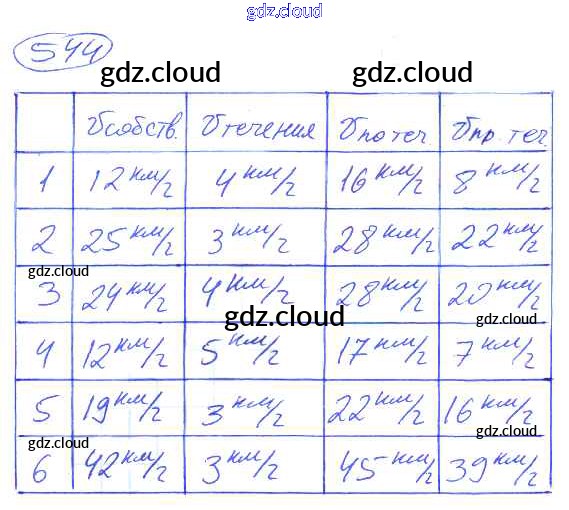 gdz.cloud
544
gdz.cloud gdz.cloud
Vсобств. Vтечения Vпо теч. Vпр. теч.
1 12 км/г 4 км/г 16 км/г 8 км/г
2 25 км/г 3 км/г 28 км/г 22 км/г
gdz.cloud gdz.cloud
3 24 км/г 4 км/г 28 км/г 20 км/г
gdz.cloud gdz.cloud
4 12 км/г 5 км/г 17 км/г 7 км/г
5 19 км/г 3 км/г 22 км/г 16 км/г
gdz.cloud gdz.cloud
6 42 км/г 3 км/г 45 км/г 39 км/г
gdz.cloud